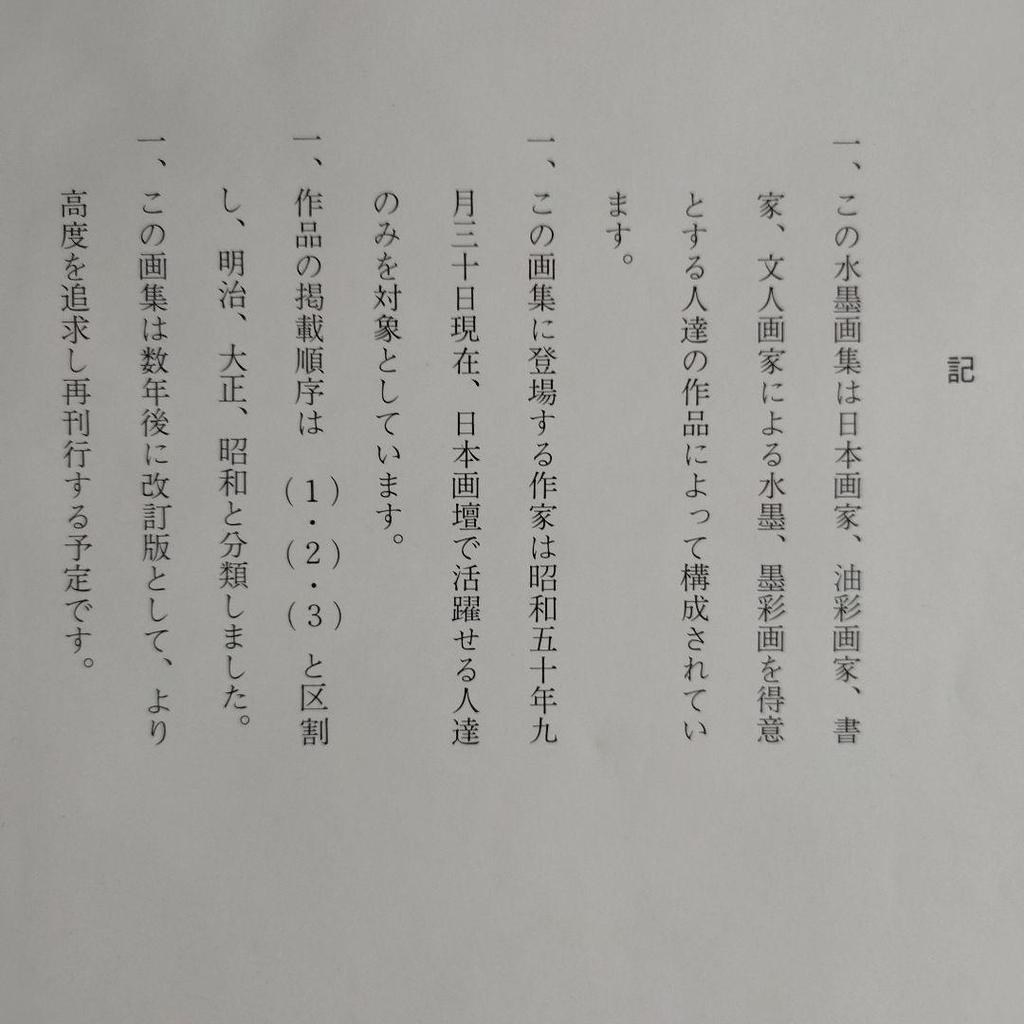 記
一、この水墨画集は日本画家、油彩画家、書
家、文人画家による水墨、墨彩画を得意
とする人達の作品によって構成されてい
ます。
一、この画集に登場する作家は昭和五十年九
月三十日現在、日本画壇で活躍せる人達
のみを対象としています。
一、作品の掲載順序は（1）・（2）・（3）と区割
し、明治、大正、昭和と分類しました。
一、この画集は数年後に改訂版として、より
高度を追求し再刊行する予定です。